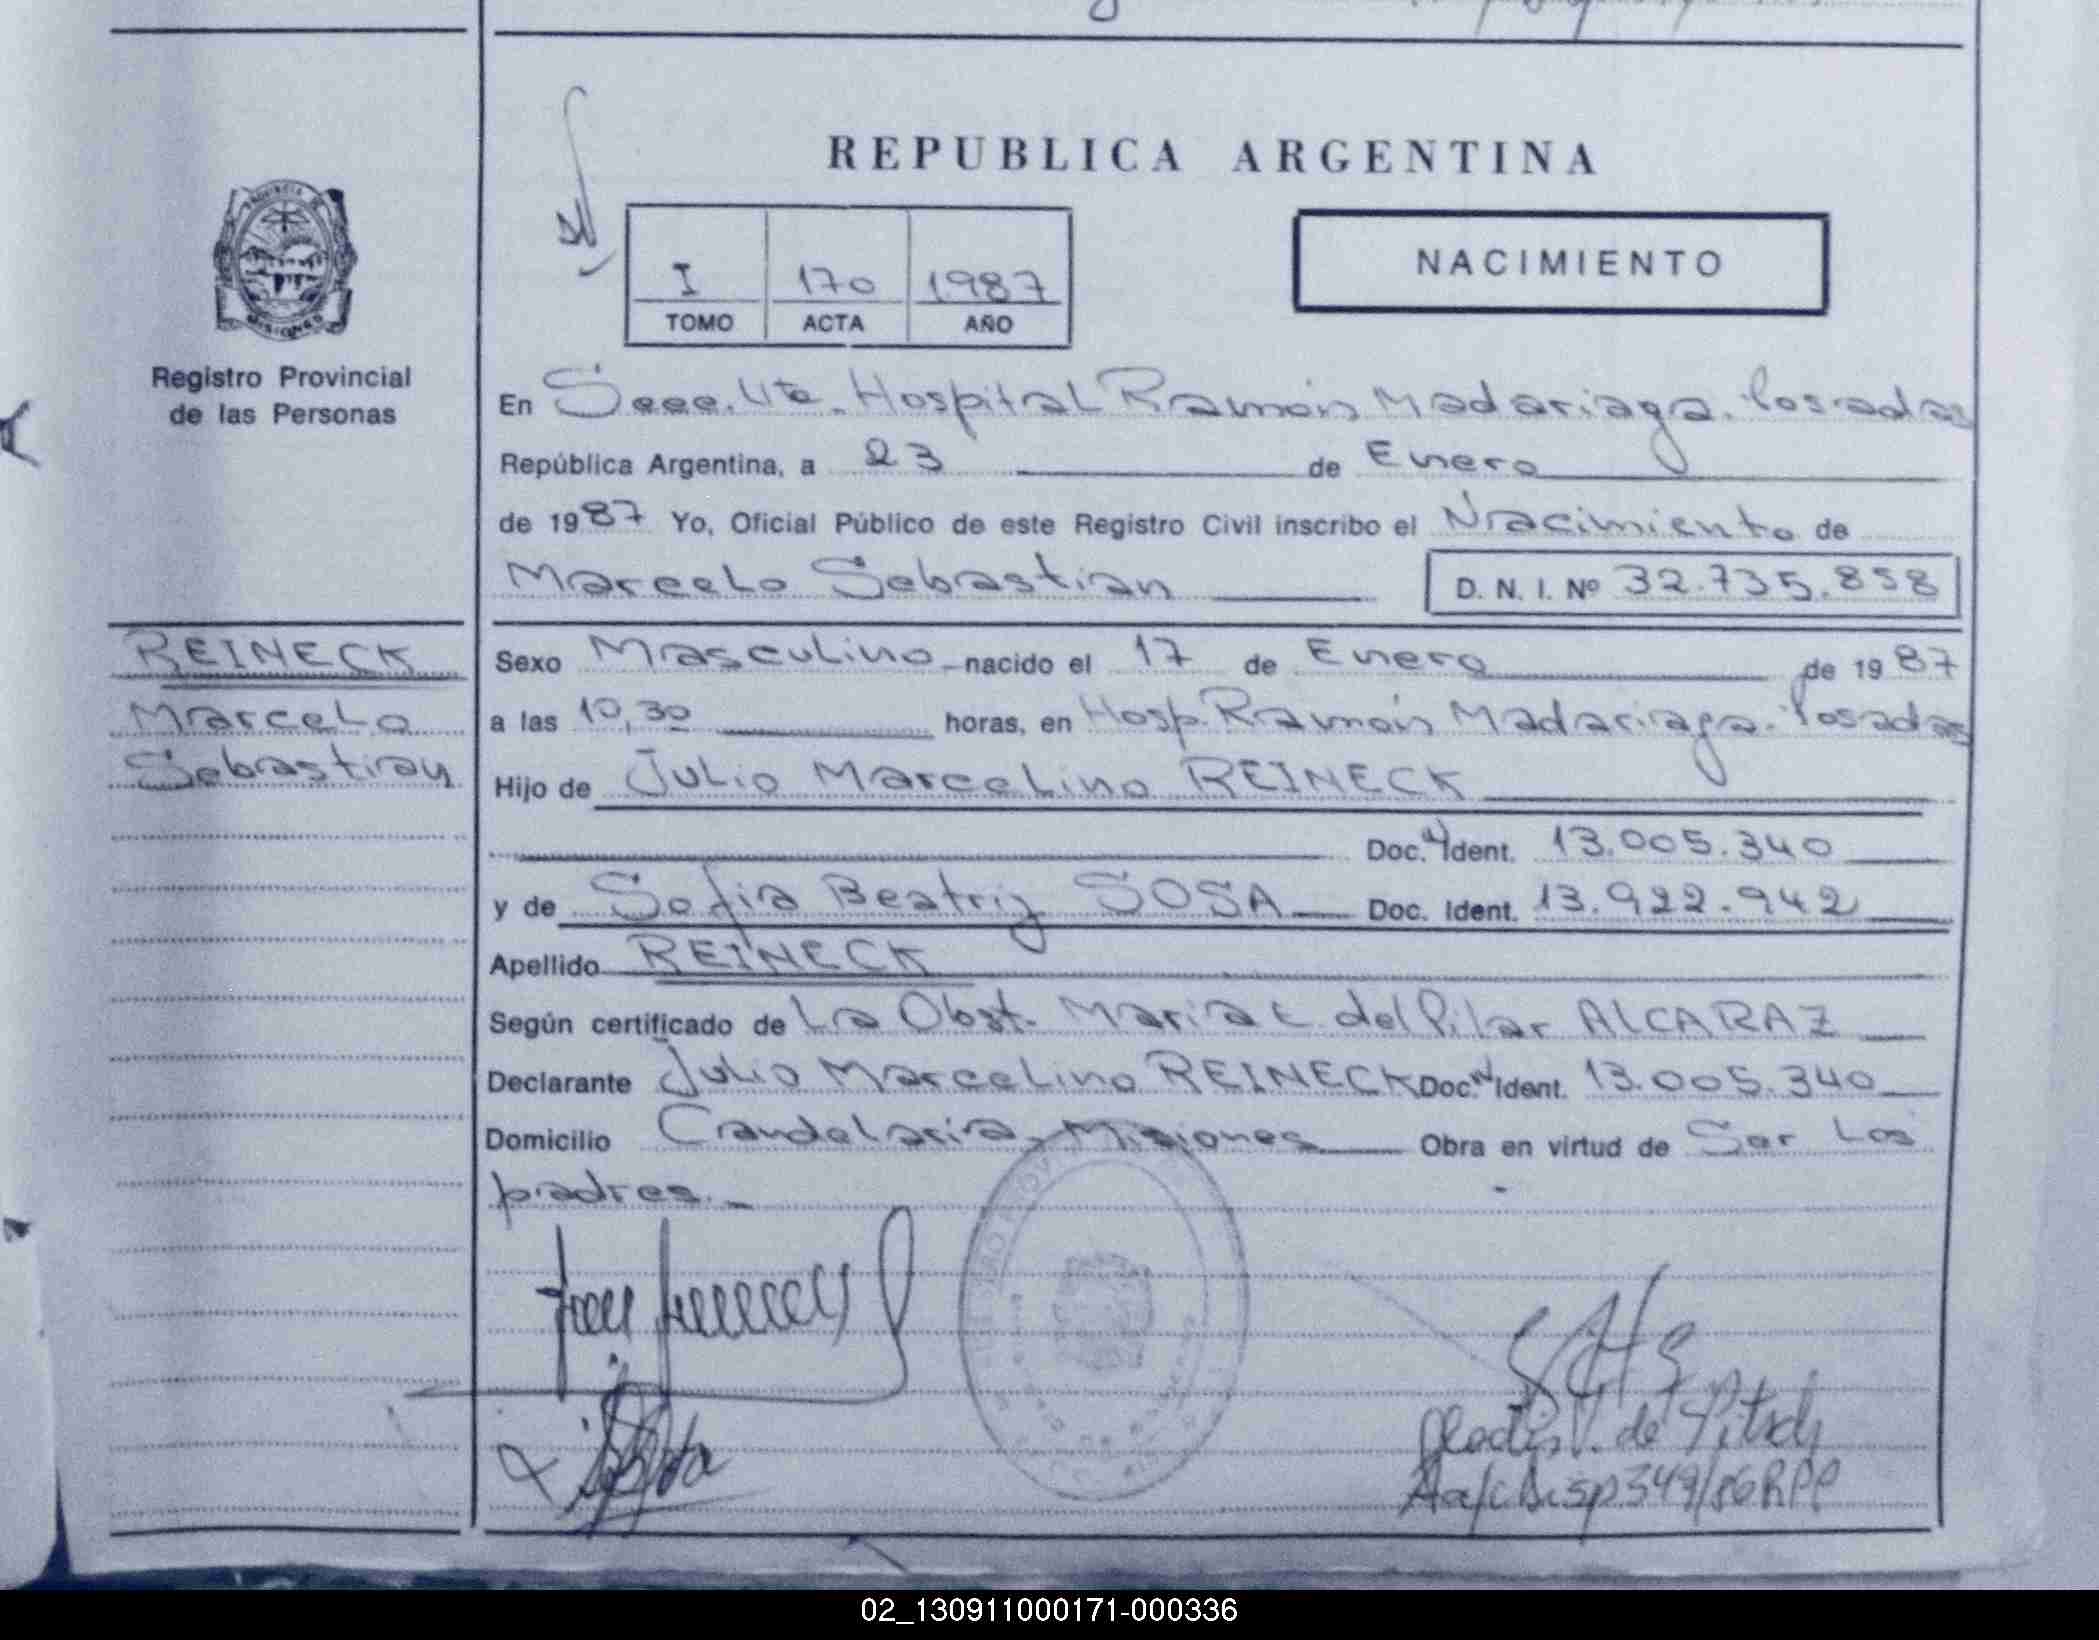 REPUBLICA ARGENTINA
NACIMIENTO
I 170 1987
TOMO ACTA AÑO
PROVINCIA DE
MISIONES
Registro Provincial
de las Personas
En Secc. Hospital Ramón Madariaga. Posadas
República Argentina, a 23 de Enero
de 1987 Yo, Oficial Público de este Registro Civil inscribo el Nacimiento de
Marcelo Sebastian D. N. I. Nº 32.735.858
REINECK
Marcelo
Sebastian
Sexo Masculino nacido el 17 de Enero de 1987
a las 10,30 horas, en Hosp. Ramón Madariaga. Posadas
Hijo de Julio Marcelino REINECK
Doc. Ident. 13.005.340
y de Sofia Beatriz SOSA Doc. Ident. 13.922.942
Apellido REINECK
Según certificado de La Obst. Maria C. del Pilar ALCARAZ
Declarante Julio Marcelino REINECK Doc. Ident. 13.005.340
Domicilio Candelaria, Misiones Obra en virtud de Ser Los
padres.
Gladis V. de
Disp 349/86 RPP
02_130911000171-000336